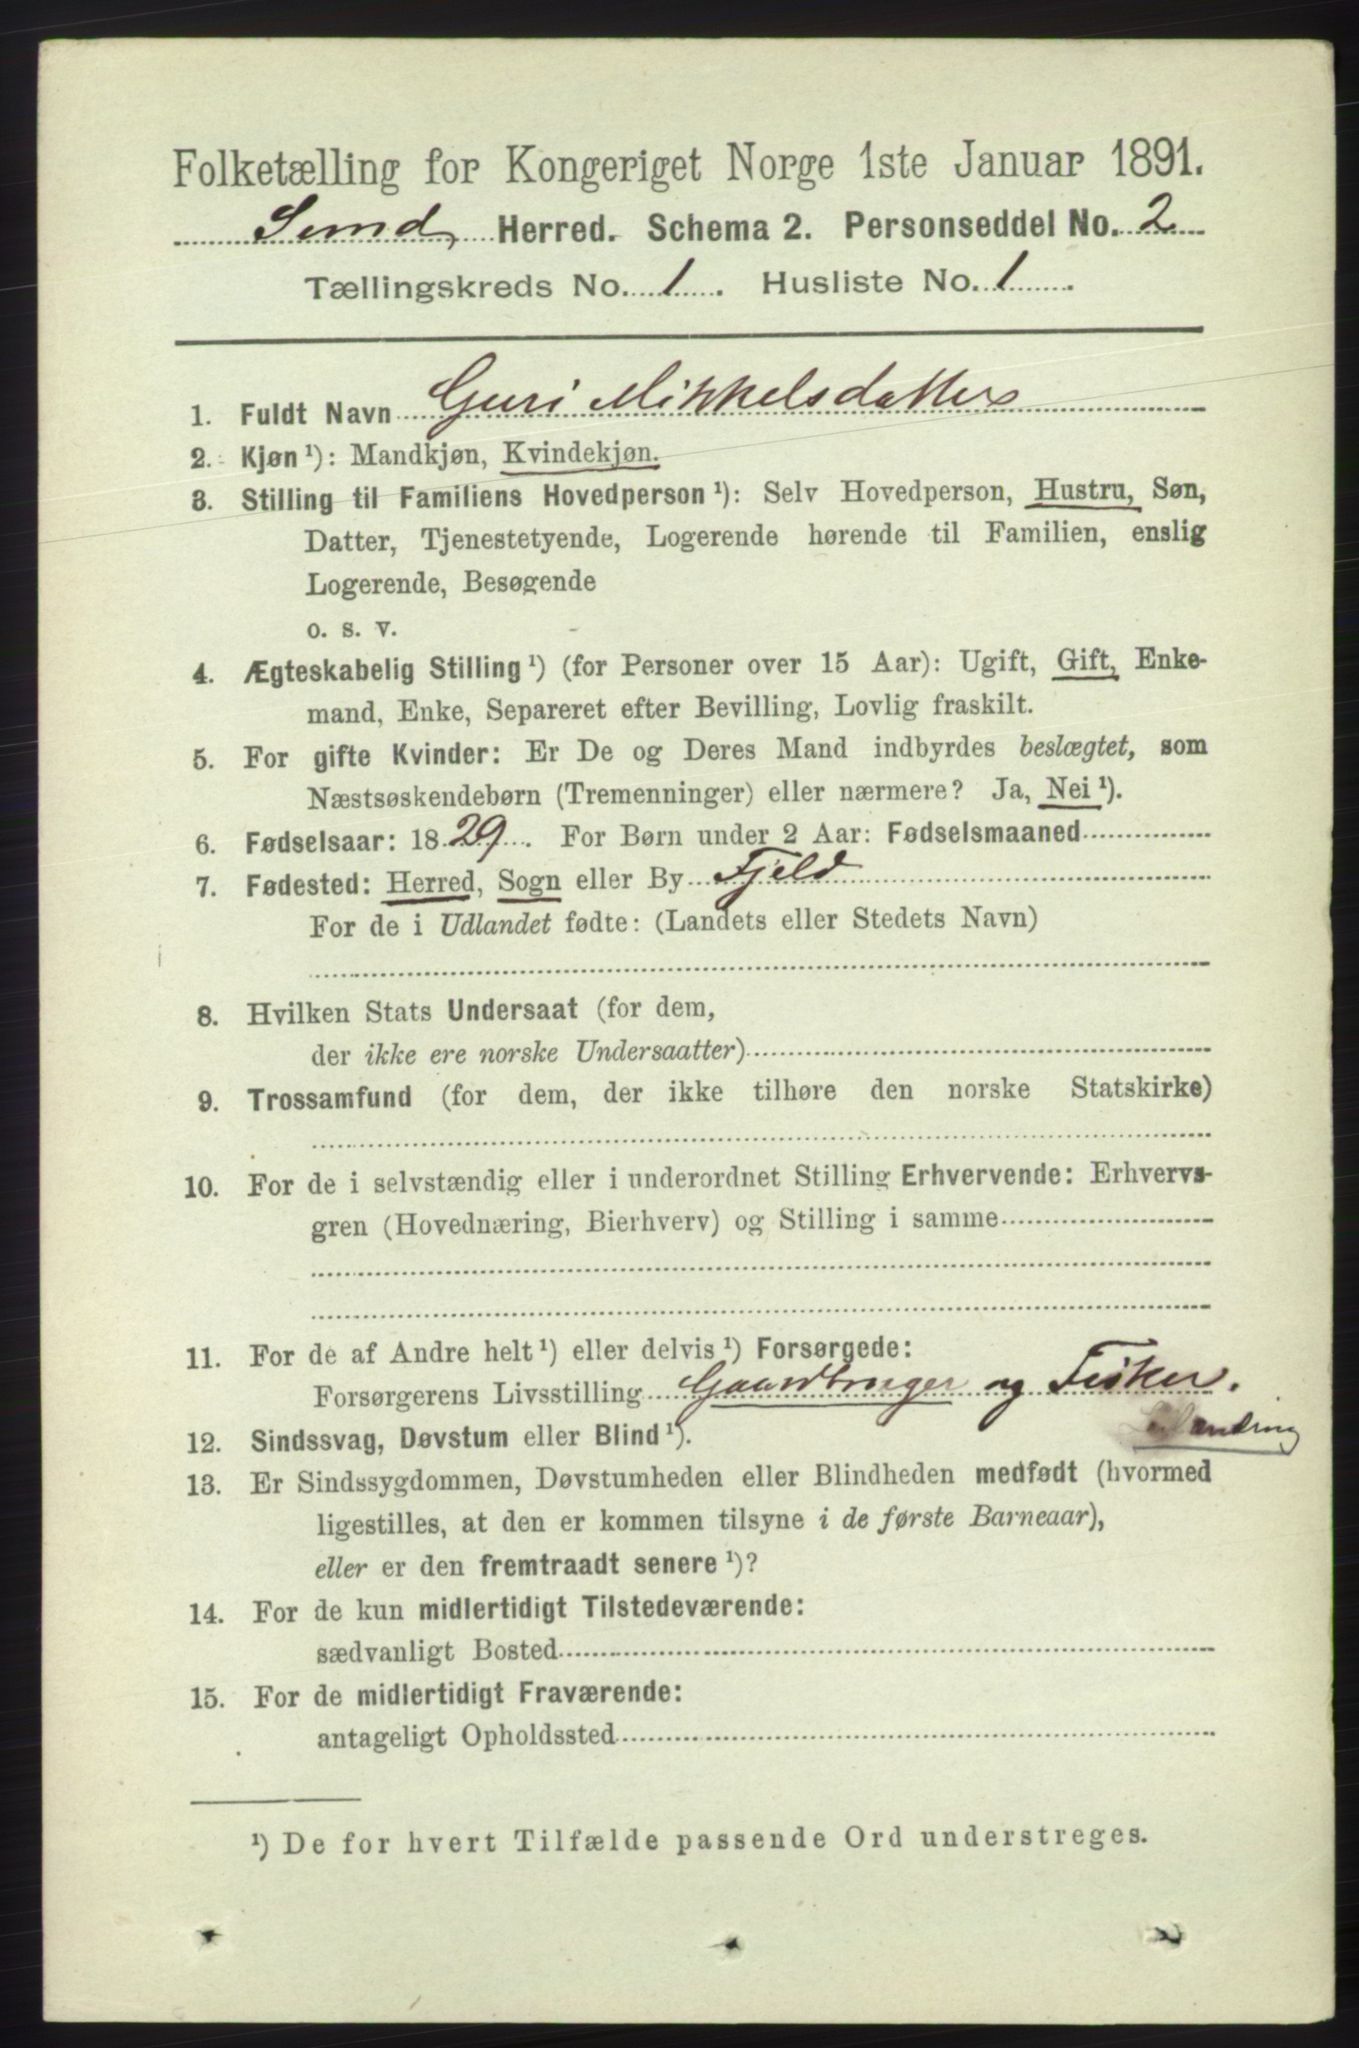 Folketælling for Kongeriget Norge 1ste Januar 1891.
Sund Herred. Schema 2. Personseddel No. 2
Tællingskreds No. 1. Husliste No. 1.
1. Fuldt Navn Guri Mikkelsdatter
2. Kjøn ¹): Mandkjøn, Kvindekjøn.
3. Stilling til Familiens Hovedperson ¹): Selv Hovedperson, Hustru, Søn,
Datter, Tjenestetyende, Logerende hørende til Familien, enslig
Logerende, Besøgende
o. s. v.
4. Ægteskabelig Stilling ¹) (for Personer over 15 Aar): Ugift, Gift, Enke-
mand, Enke, Separeret efter Bevilling, Lovlig fraskilt.
5. For gifte Kvinder: Er De og Deres Mand indbyrdes beslægtet, som
Næstsøskendebørn (Tremenninger) eller nærmere? Ja, Nei ¹).
6. Fødselsaar: 1829. For Børn under 2 Aar: Fødselsmaaned
7. Fødested: Herred, Sogn eller By Fjeld
For de i Udlandet fødte: (Landets eller Stedets Navn)
8. Hvilken Stats Undersaat (for dem,
der ikke ere norske Undersaatter)
9. Trossamfund (for dem, der ikke tilhøre den norske Statskirke)
10. For de i selvstændig eller i underordnet Stilling Erhvervende: Erhvervs-
gren (Hovednæring, Bierhverv) og Stilling i samme
11. For de af Andre helt ¹) eller delvis ¹) Forsørgede:
Forsørgerens Livsstilling Gaardbruger og Fisker.
12. Sindssvag, Døvstum eller Blind ¹).
13. Er Sindssygdommen, Døvstumheden eller Blindheden medfødt (hvormed
ligestilles, at den er kommen tilsyne i de første Barneaar),
eller er den fremtraadt senere ¹)?
14. For de kun midlertidigt Tilstedeværende:
sædvanligt Bosted
15. For de midlertidigt Fraværende:
antageligt Opholdssted
¹) De for hvert Tilfælde passende Ord understreges.